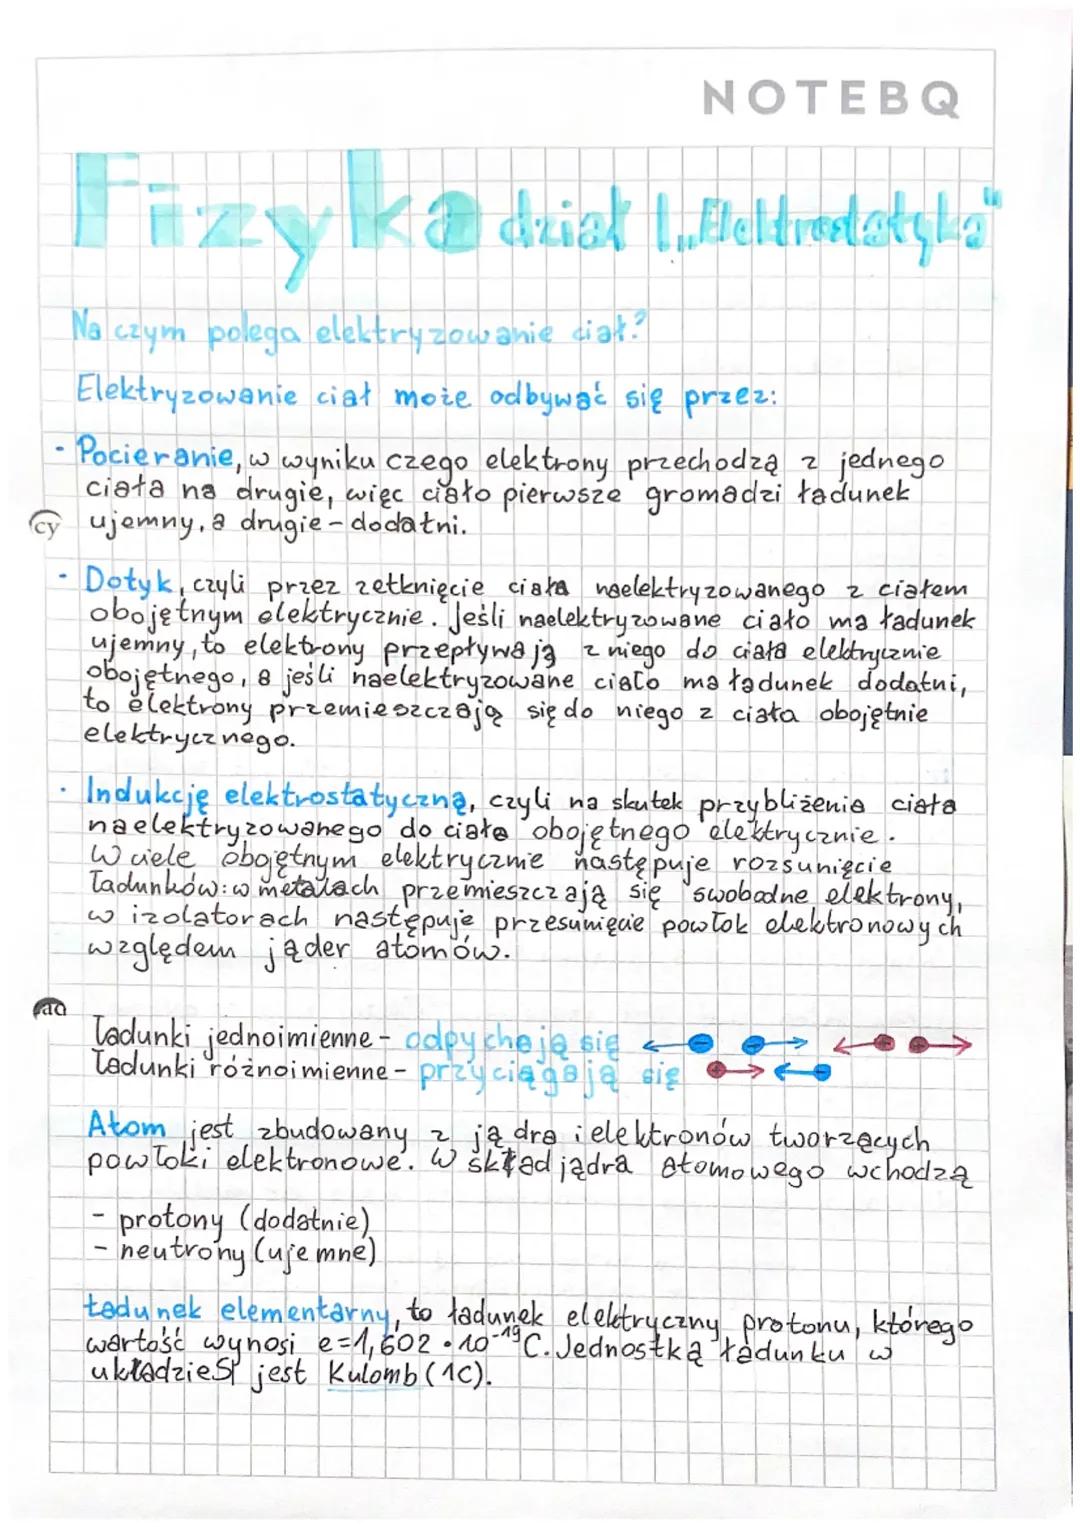 NOTEBQ
Fizyka dział 1 „Elektrostatyka"
Na czym polega elektryzowanie ciał?
Elektryzowanie ciał może odbywać się przez:
- Pocieranie, w wyniku czego elektrony przechodzą z jednego
ciała na drugie, więc ciało pierwsze gromadzi ładunek
cy
ujemny, a drugie - dodatni.
- Dotyk, czyli przez zetknięcie ciała naelektryzowanego z ciałem
obojętnym elektrycznie. Jeśli naelektryzowane ciało ma ładunek
ujemny, to elektrony przepływają z niego do ciała elektrycznie
obojętnego, a jeśli naelektryzowane ciało ma ładunek dodatni,
to elektrony przemieszczają się do niego z ciała obojętnie
elektrycznego.
· Indukcję elektrostatyczną, czyli na skutek przybliżenia ciała
naelektryzowanego do ciała obojętnego elektrycznie.
W ciele obojętnym elektrycznie następuje rozsunięcie
ładunków: w metalach przemieszczają się swobodne elektrony,
w izolatorach następuje przesunięcie powłok elektronowych
względem jąder atomów.
Ładunki jednoimienne - odpychają się
Ładunki różnoimienne - przyciągają się
Atom jest zbudowany z jądra i elektronów tworzących
powłoki elektronowe. W skład jądra atomowego wchodzą
- protony (dodatnie)
- neutrony (ujemne)
Ładunek elementarny, to ładunek elektryczny protonu, którego
wartość wynosi e=1,602 · 10⁻¹⁹ C. Jednostką ładunku w
układzie SI jest Kulomb (1C).